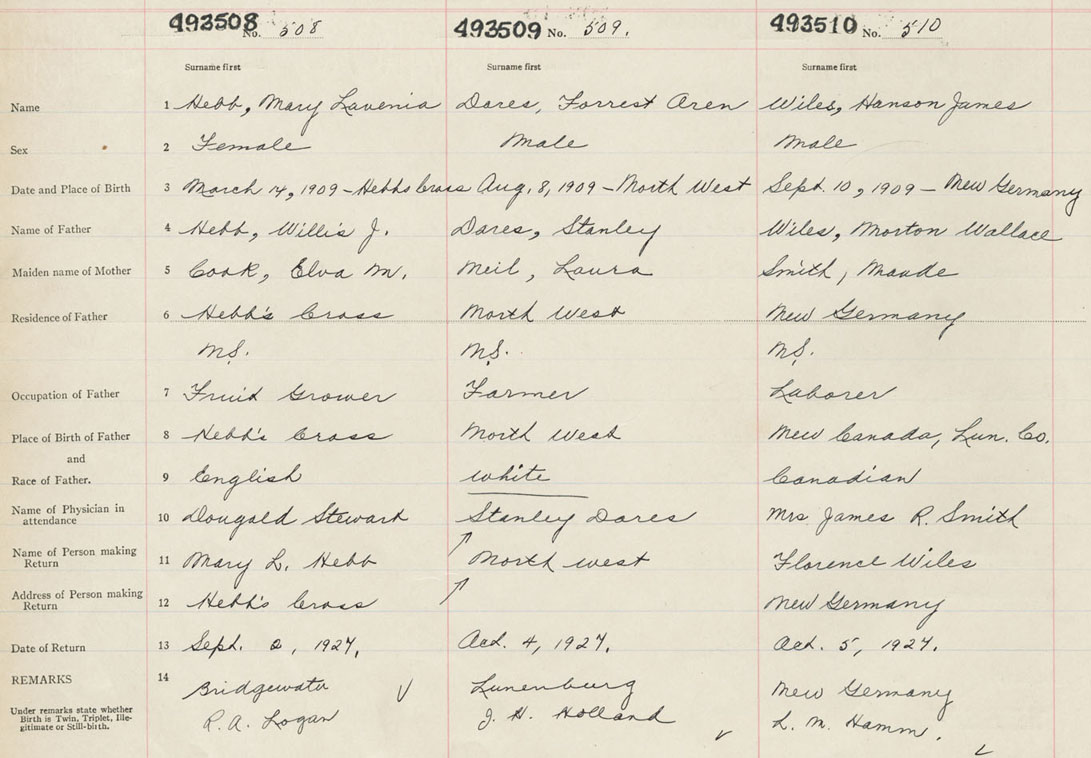 493508 No. 508 493509 No. 509. 493510 No. 510
Surname first Surname first Surname first
Name 1 Hebb, Mary Lavenia Dares, Forrest Aren Wiles, Hanson James
Sex 2 Female Male Male
Date and Place of Birth 3 March 14, 1909 - Hebbs Cross Aug. 8, 1909 - North West Sept. 10, 1909 - New Germany
Name of Father 4 Hebb, Willis J. Dares, Stanley Wiles, Morton Wallace
Maiden name of Mother 5 Cook, Elva M. Neil, Laura Smith, Maude
Residence of Father 6 Hebb's Cross North West New Germany
N.S. N.S. N.S.
Occupation of Father 7 Fruit Grower Farmer Laborer
Place of Birth of Father 8 Hebb's Cross North West New Canada, Lun. Co.
and
Race of Father. 9 English white Canadian
Name of Physician in
attendance 10 Dougald Stewart Stanley Dares Mrs James R. Smith
Name of Person making
Return 11 Mary L. Hebb North west Florence Wiles
Address of Person making
Return 12 Hebb's Cross New Germany
Date of Return 13 Sept. 2, 1927. Oct. 4, 1927. Oct. 5, 1927.
REMARKS 14 Bridgewater Lunenburg New Germany
Under remarks state whether
Birth is Twin, Triplet, Ille-
gitimate or Still-birth. R. A. Logan J. H. Holland L. M. Hamm.